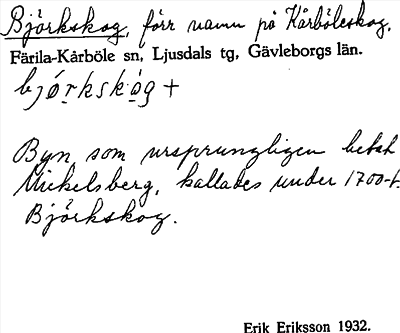 Björkskog, förr namn på Kårböleskog,
Färila-Kårböle sn, Ljusdals tg, Gävleborgs län.
bjǿrkskóg +
Byn, som ursprungligen betat
Mickelsberg, kallades under 1700-t.
Björkskog.
Erik Eriksson 1932.